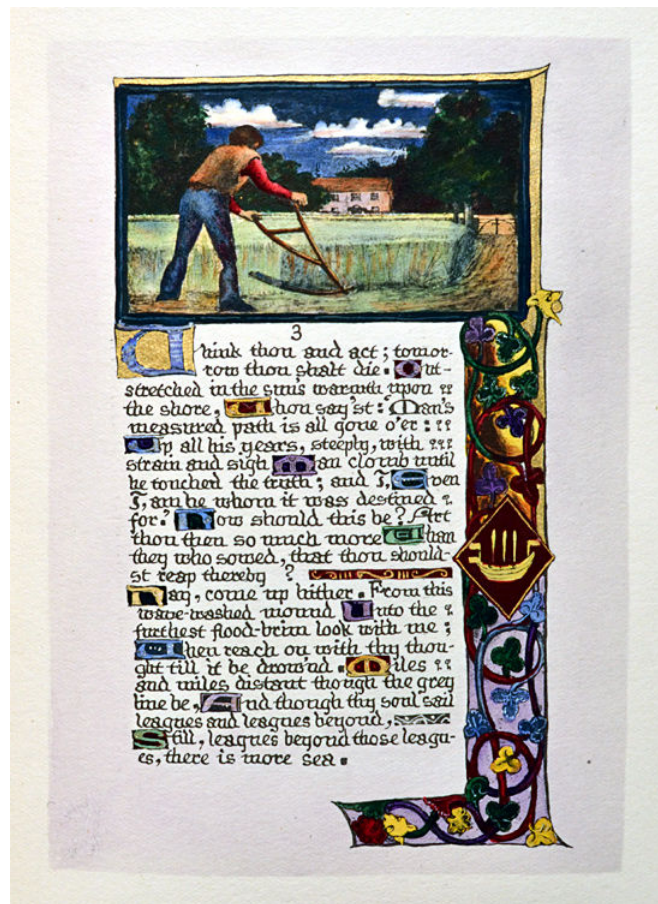 3
Think thou and act; tomor-
row thou shalt die. Out-
stretched in the sun's warmth upon
the shore, Thou say'st: Man's
measured path is all gone o'er:
Up all his years, steeply, with
strain and sigh Man clomb until
he touched the truth; and I, Even
I, am he whom it was destined
for. How should this be? Art
thou then so much more Than
they who sowed, that thou should-
st reap thereby ?
Nay, come up hither. From this
wave-washed mound Unto the
furthest flood-brim look with me;
Then reach on with thy thou-
ght till it be drown'd. Miles
and miles distant though the grey
line be, And though thy soul sail
leagues and leagues beyond,
Still, leagues beyond those leagu-
es, there is more sea.